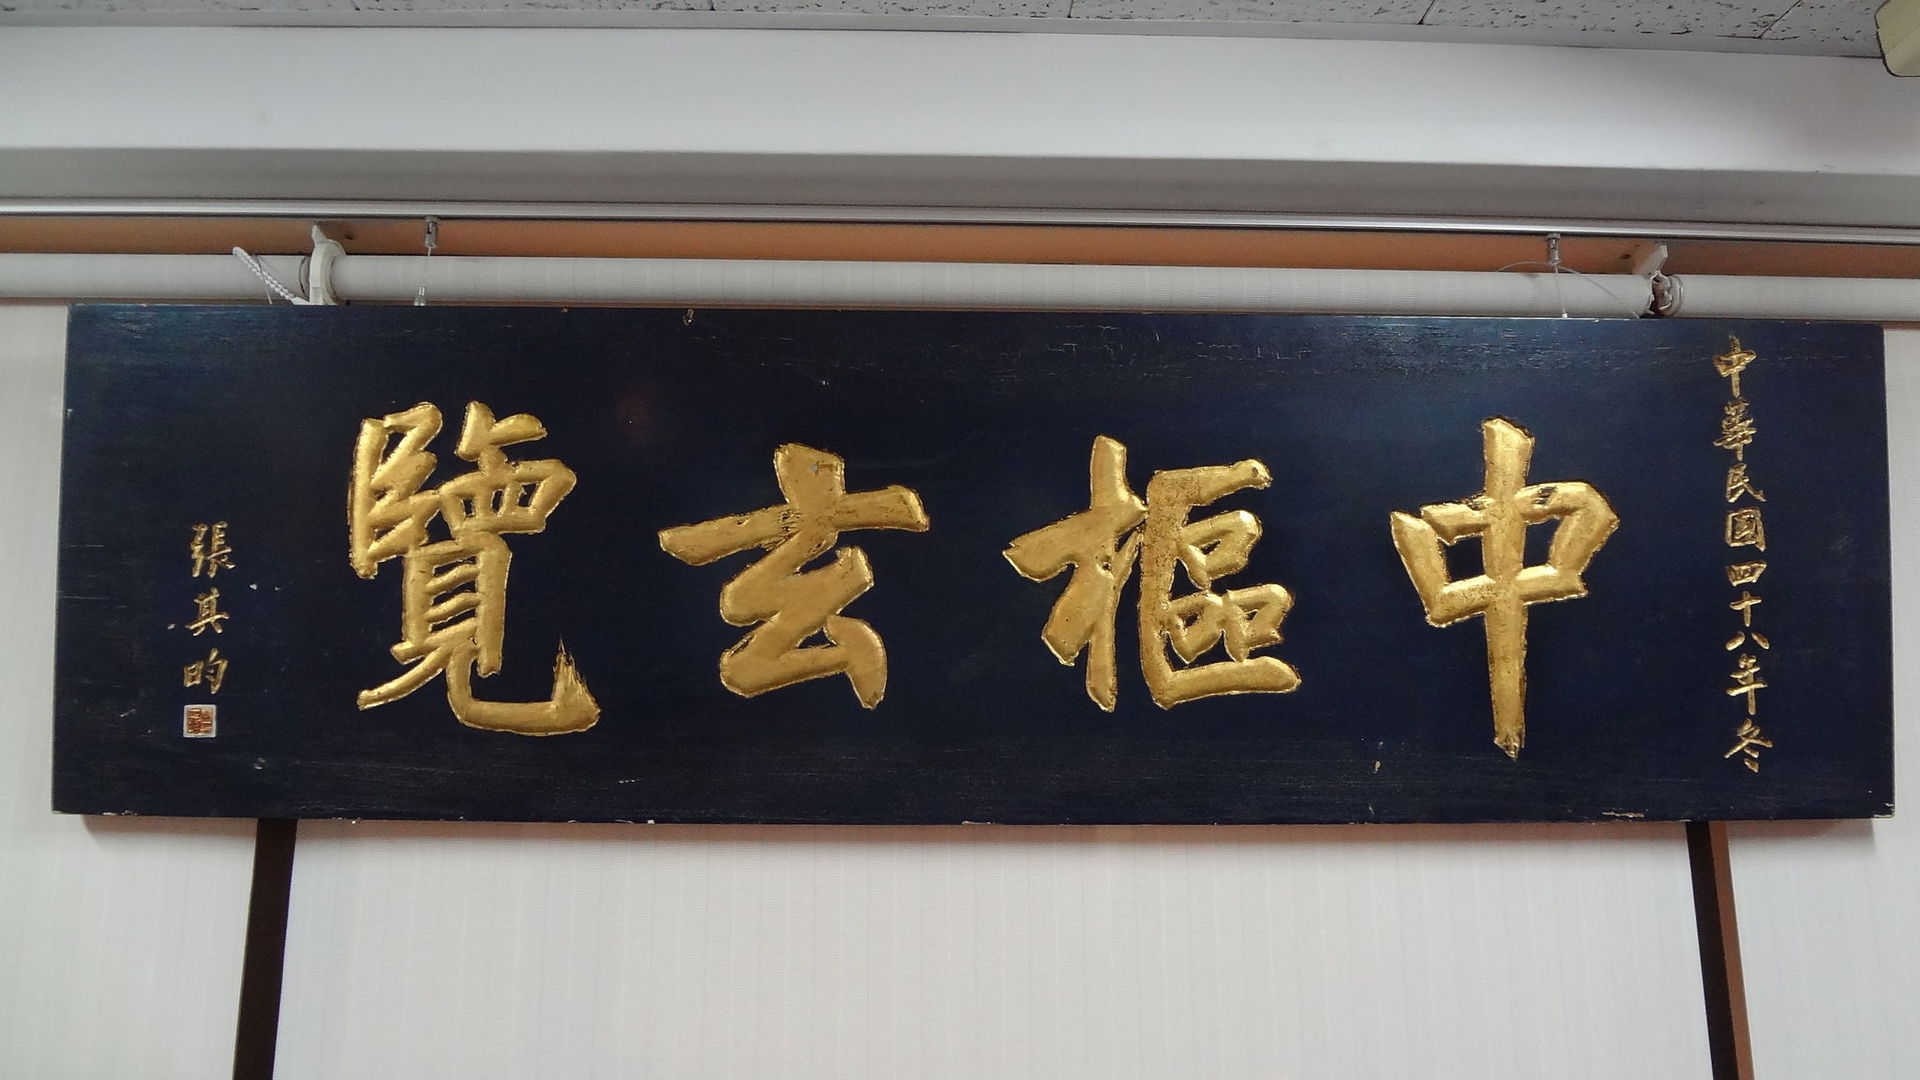 中華民國四十八年冬
中樞玄覽
張其昀